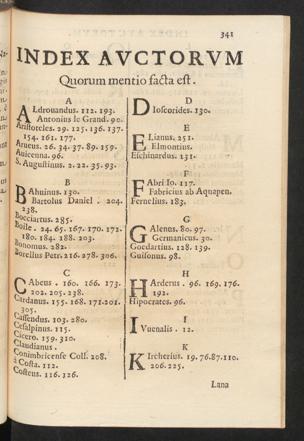 341
INDEX AVCTORVM
Quorum mentio facta est.
A
ALdrouandus. 112. 193.
Antonius le Grand. 90.
Aristoteles. 29. 125. 136. 137.
154. 161. 177.
Aratus. 26. 34. 37. 89. 159.
Auicenna. 96.
S. Augustinus. 2. 22. 35. 93.
B
BAhuinus. 130.
Bartolus Daniel. 204.
238.
Bocciartus. 285.
Boile. 24. 65. 167. 170. 172.
180. 184. 188. 203.
Bonomus. 282.
Borellus Petr. 216. 278. 306.
C
CAbeus. 160. 166. 173.
202. 205. 238.
Cardanus. 155. 168. 171. 201.
305.
Cassendus. 103. 280.
Cesalpinus. 115.
Cicero. 159. 310.
Claudianus.
Conimbricense Coll. 208.
à Costa. 112.
Costeus. 116. 126.
D
DIoscorides. 130.
E
ELianus. 251.
Elmontius.
Eschinardus. 131.
F
FAbri Io. 117.
Fabricius ab Aquapen.
Fernelius. 183.
G
GAlenus. 80. 97.
Germanicus. 30.
Goedartius. 128. 139.
Guisonus. 98.
H
HArderus. 96. 169. 176.
192.
Hipocrates. 96.
I
IVuenalis. 12.
K
KIrcherius. 19. 76. 87. 110.
206. 225.
Lana